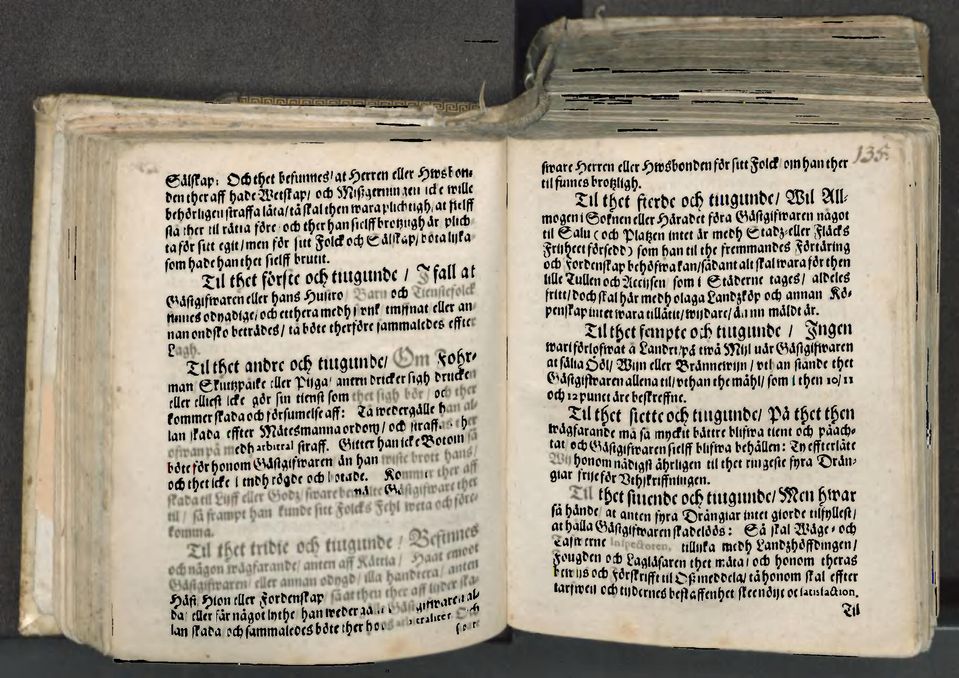 Sälskap: Och thet befunnes/ at Herren eller Hwsbon-
den ther aff hade Wetskap/ och Mißgerningen icke wille
behörligen straffa låta/ tå skal then wara plichtigh/ at sielff
stå ther til rätta före/ och ther han sielff brotzligh är plich-
ta för sitt egit/ men för sitt Folck och Sälskap/ böta lijka
som hade han thet sielff brutit.
Til thet förste och tiugunde / Ifall at
Gästgifwaren eller hans Hustro/ Barn och Tienstefolck
finnes odygdige/ och ett thera medh
nan ondsko beträdes/ tå böte therföre sammaledes effter
Lagh.
Til thet andre och tiugunde/ Om Fohr-
man Skutzpoike eller Pijga/ anten dricker sigh drucken
eller elliest icke gör sin tienst som thet sigh bör/ och ther
kommer skada och försumelse aff: Tå wedergälle han al-
lan skada effter Mätesmanna ordom/ och straffas ther
ofwan på medh arbitral straff. Gitter han icke Botom
böte för honom Gästgifwaren än han wiste brott hans/
och thet icke i medh rögde och botade. Kommer ther aff
skada til Lijff eller Godz/ sware Gästgifwaren ther
til / så frampt han kunde sitt Folcks Fehl weta och före-
komma.
Til thet tridie och tiugunde / Befinnes
och någon wägfarande/ anten aff Kättia / Haat emoot
Gästgifwaren/ eller annan odygd/ illa handtera/ anten
Häst/ Hion eller Fordenskap/ så at then ther aff lijder ska-
da/ eller får något lythe/ han wedergälle Gästgifwaren al-
lan skada och sammaledes böte ther hoos arbitraliter Och
sware
135.
sware Herren eller Hwsbonden för sitt Folck/ om han ther
til finnes brotzligh.
Til thet fierde och tiugunde/ Wil All-
mogen i Soknen eller Häradet föra Gästgifwaren något
til Salu (och Platzen intet är medh Stadz-eller Fläcks
Frijheet försedd) som han til the fremmandes Förtäring
och Fordenskap behöfwa kan/ sådant alt skal wara för then
lille Tullen och Accijsen/ som i Städerne tages/ aldeles
fritt/ doch skal här medh olaga Landzköp och annan Kö-
penskap intet wara tillåtit/ wijdare/ än nu måldt är.
Til thet fempte och tiugunde / Ingen
wari förlofwat å Landet/ på twå Mijl när Gästgifwaren
at sälia Ööl/ Wijn eller Brännewijn / uthan stånde thet
Gästgifwaren allena til/ uthan the måhl/ som i then 10/ 11
och 12 punct äre beskreffne.
Til thet siette och tiugunde/ På thet then
wägfarande må så myckit bättre blifwa tient och påach-
tat och Gästgifwaren sielff blifwa behållen: Ty effterlåte
Wij honom nådigst åhrligen til thet ringeste fyra Drän-
giar frije för Uthskriffningen.
Til thet siuende och tiugunde/ Men hwar
så hände/ at anten fyra Drängiar intet giorde tilfyllest/
at hålla Gästgifwaren skadelöös: Så skal Wäge- och
Tafwerne Inspectoren, tillijka medh Landzhöffdingen/
Fougden och Lagläsaren thet mäta/ och honom theras
bewijs och Förskrifft til Oß meddela/ tå honom skal effter
tarfwen och tijdernes beskaffenhet skee nöije oc satisfaction.
Til